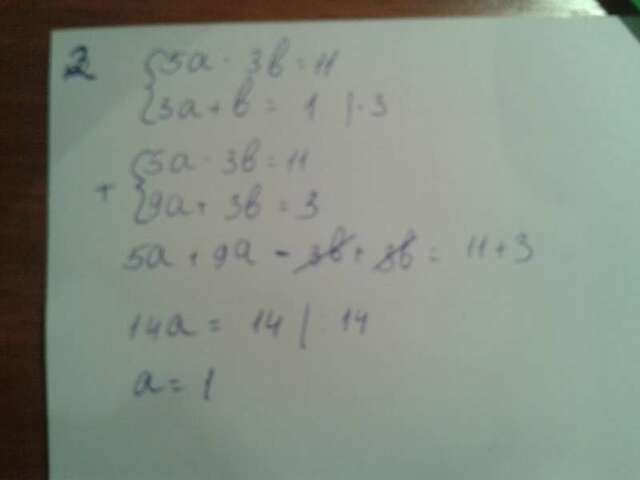 2
{5a - 3b = 11
{3a + b = 1 | · 3
+ {5a - 3b = 11
{9a + 3b = 3
5a + 9a - 3b + 3b = 11 + 3
14a = 14 | : 14
a = 1